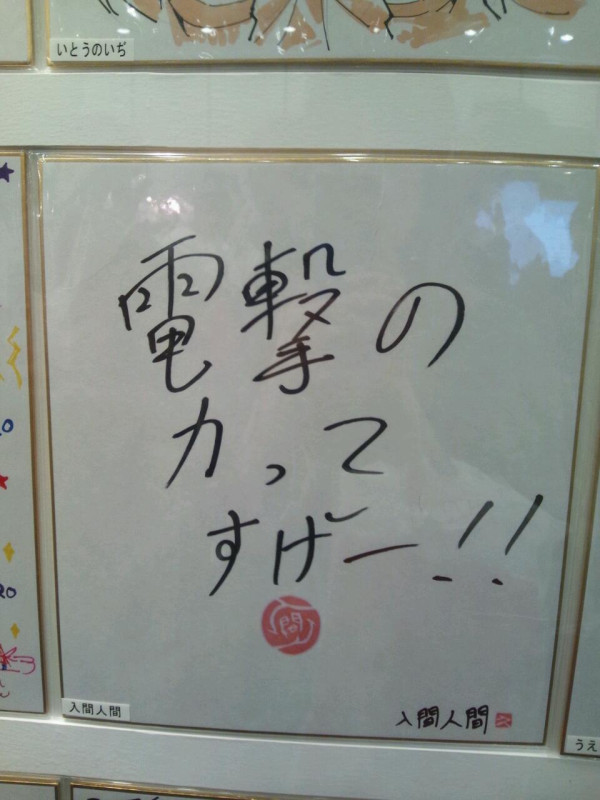 いとうのいぢ
電撃の
力って
すげー!!
間
入間人間
入間人間
うえ